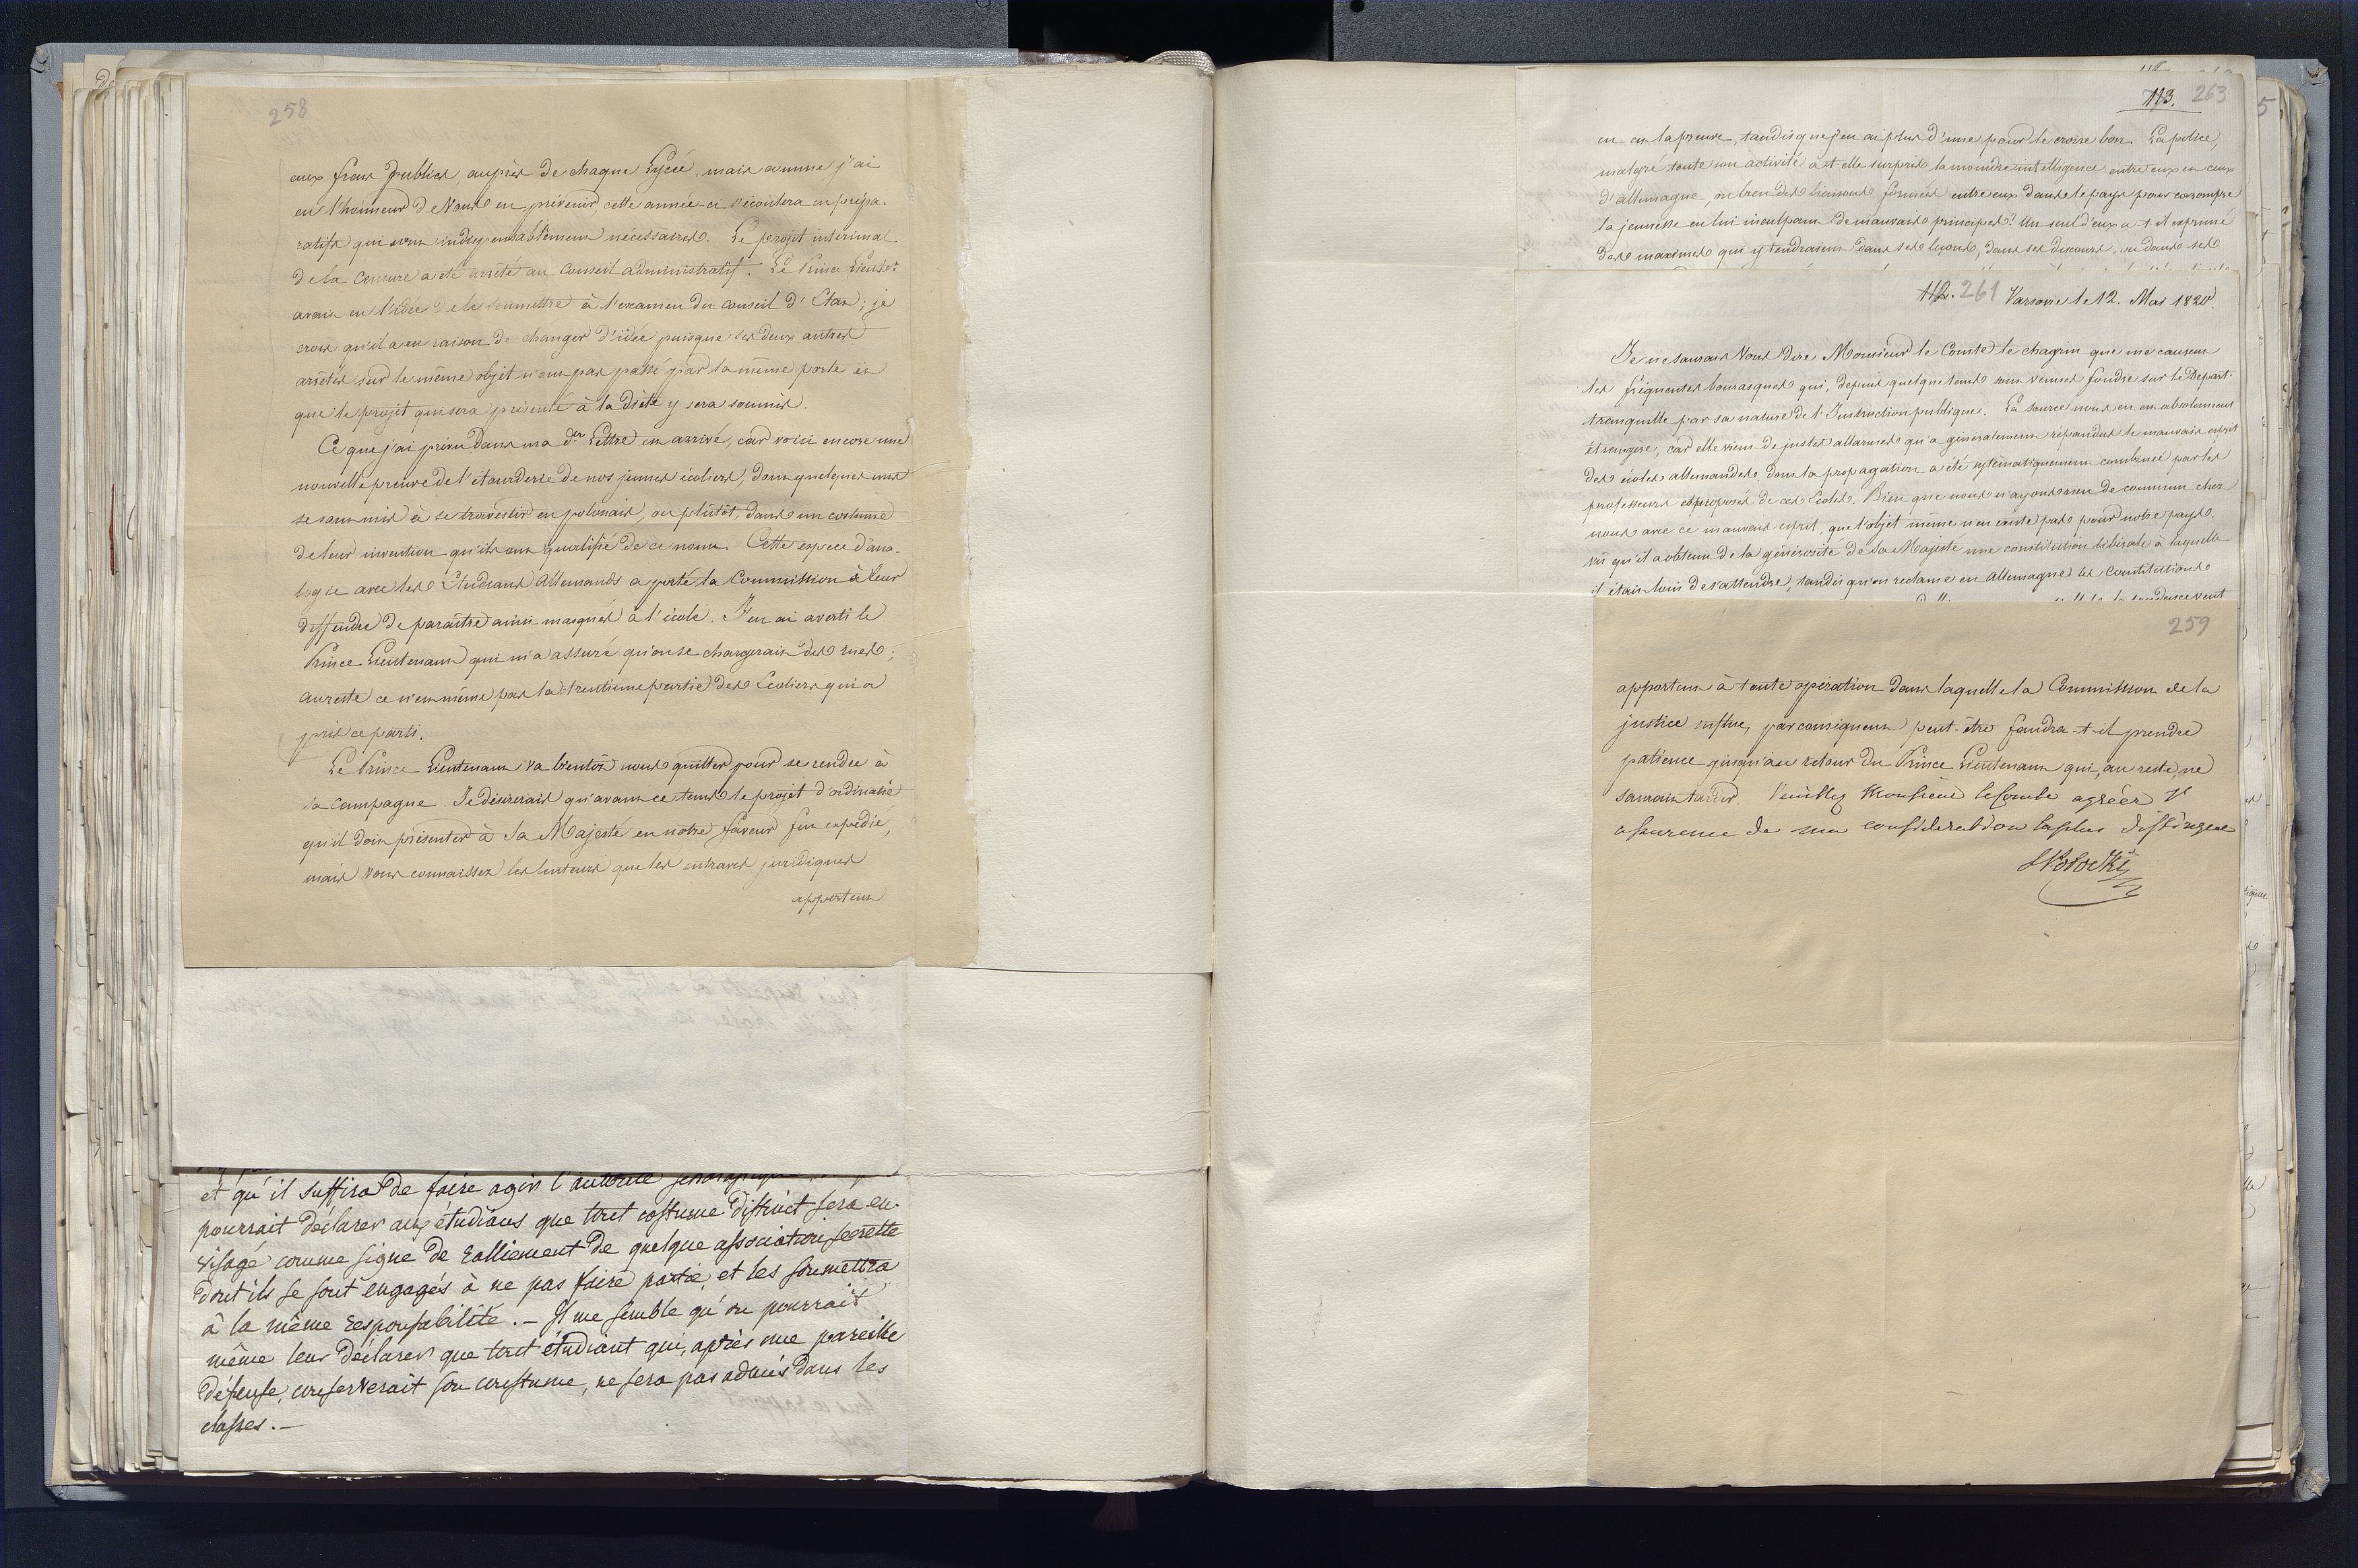 258
aux frais publics, auprès de chaque Lycée, mais comme j'ai
eu l'honneur de Vous en prévenir, cette année-ci s'écoulera en prépa-
ratifs qui sont indispensablement nécessaires. Le projet intérimal
de la Censure a été arrêté au Conseil administratif. Le Prince Lieutet
avait eu l'idée de le soumettre à l'examen du conseil d'Etat; je
crois qu'il a eu raison de changer d'idée puisque les deux autres
arrêtés sur le même objet n'ont pas passé par la même porte et
que le projet qui sera présenté à la diète y sera soumis.
Ce que j'ai prévu dans ma der Lettre est arrivé, car voici encore une
nouvelle preuve de l'étourderie de nos jeunes écoliers, dont quelques uns
se sont mis à se travestir en polonais, ou plûtôt, dans un costume
de leur invention qu'ils ont qualifié de ce nom. Cette espece d'ana-
logie avec les Etudians Allemands a porté la Commission à leur
deffendre de paraître ainsi masqués à l'école. J'en ai averti le
Prince Lieutenant qui m'a assuré qu'on se chargerait des rues;
au reste ce n'est même pas la trentieme partie des Ecoliers qui a
pris ce parti.
Le Prince Lieutenant va bientôt nous quitter pour se rendre à
sa campagne. Je désirerais qu'avant ce tems le projet d'ordinatié
qu'il doit présenter à Sa Majesté en notre faveur fut expédié,
mais Vous connaissez les lenteurs que les entraves juridiques
apportent
et qu'il suffira de faire agir l'autorité
pourrait déclarer aux étudians que tout costume distinct sera en-
visagé comme signe de ralliement de quelque association secrette
dont ils se sont engagés à ne pas faire partie, et les soumettra
à la même responsabilité. — Il me semble qu'on pourrait
même leur déclarer que tout étudiant qui, après une pareille
défense, conserverait son costume, ne sera pas admis dans les
classes. —
113. 263
en est la preuve, tandis que j'en ai plus d'une pour le croire bon. La police,
malgré toute son activité a-t-elle surpris la moindre intelligence entre eux et ceux
d'allemagne, ou bien des liaisons formées entre eux dans le pays pour corrompre
la jeunesse en lui inculquant de mauvais principes? Un seul d'eux a-t-il exprimé
des maximes qui y tendraient dans ses leçons, dans ses discours, ou dans ses
112. 261 Varsovie le 12. Mai 1820.
Je ne saurais Vous dire Monsieur le Comte le chagrin que me causent
les fréquentes bourasques qui, depuis quelque tems sont venues fondre sur le Départ:
tranquille par sa nature de l'Instruction publique. La source nous en est absolument
étrangère, car elle vient de justes allarmes qu'a généralement répandues le mauvais esprit
des écoles allemandes dont la propagation a été systématiquement combinée par les
professeurs et préposés de ces Ecoles. Bien que nous n'ayons rien de commun chez
nous avec ce mauvais esprit, que l'objet même n'en existe pas pour notre pays.
vû qu'il a obtenu de la générosité de Sa Majesté une constitution libérale à laquelle
il était loin de s'attendre, tandis qu'on réclame en Allemagne les Constitutions
259
apportent à toute opération dans laquelle la Commission de la
justice influe, par conséquent peut-être faudra-t-il prendre
patience jusqu'au retour du Prince Lieutenant qui, au reste, ne
saurait tarder. Veuillez Monsieur le Comte agréer l'
assurence de ma consideration la plus distinguée
SPotocki